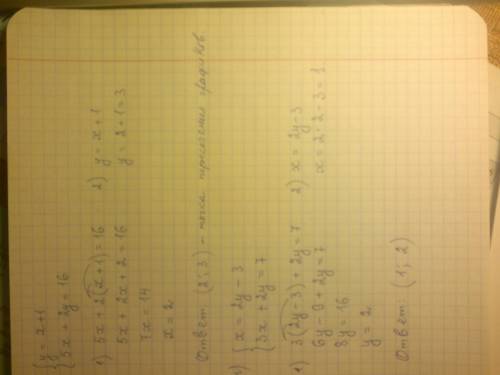 { y = x+1
{ 5x + 2y = 16
1) 5x + 2(x+1) = 16
5x + 2x + 2 = 16
7x = 14
x = 2
2) y = x+1
y = 2+1=3
Ответ (2; 3) – точка пересечения графиков
{ x = 2y - 3
{ 3x + 2y = 7
1) 3(2y-3) + 2y = 7
6y - 9 + 2y = 7
8y = 16
y = 2
2) x = 2y-3
x = 2·2-3 = 1
Ответ (1; 2)